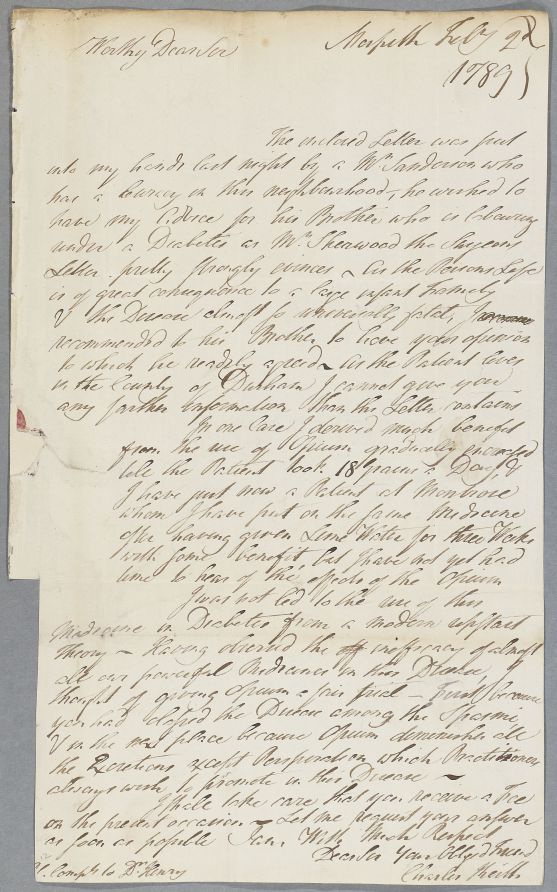 Worthy Dear Sir Morpeth Feby 2d
1789
The enclosed Letter was put
into my hands last night by a Mr. Sanderson who
has a Curacy in this neighbourhood, he wished to
have my advice for his Brother who is labouring
under a Diabetes as Mr. Sherwood the Surgeons
Letter pretty strongly evinces – As the Persons Life
is of great consequence to a large infant Family
& the Disease almost so universally fatal, I
recommended to his Brother to have your opinion
to which he readily agreed – As the Patient lives
in the County of Durham I cannot give you
any farther information than the Letter contains
In one Case I derived much benefit
from the use of Opium gradually encreased
till the Patient took 18 grains a Day, &
I have just now a Patient at Montrose
whom I have put on the same Medicine
after having given Lime Water for three Weeks
with some benefit, but I have not yet had
time to hear of the effects of the Opium
I was not led to the use of this
Medicine in Diabetes from a modern upstart
Theory – Having observed the inefficacy of almost
all our powerful Medicines in this Disease, I
thought of giving Opium a fair trial – first because
you had classed the Disease among the Spasmi,
& in the next place because Opium diminishes all
the Excretions except Perspiration which Practitioners
always wish to promote in this Disease –
I shall take care that you receive a Fee
on the present occasion – Let me request your answer
as soon as possible I am, With much Respect
Dear Sir Your Obliged Friend
Charles Keith
Compts to Dr. Henry